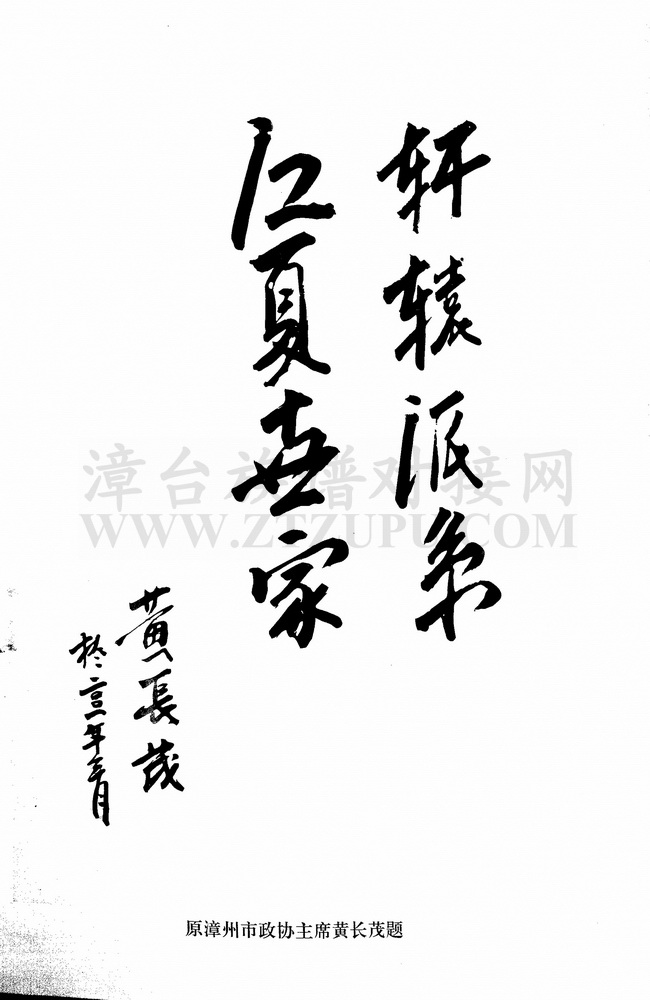 轩辕派系
江夏世家
黄長茂
於二〇〇一年三月
漳台族谱对接网
WWW.ZTZUPU.COM
原漳州市政协主席黄长茂题